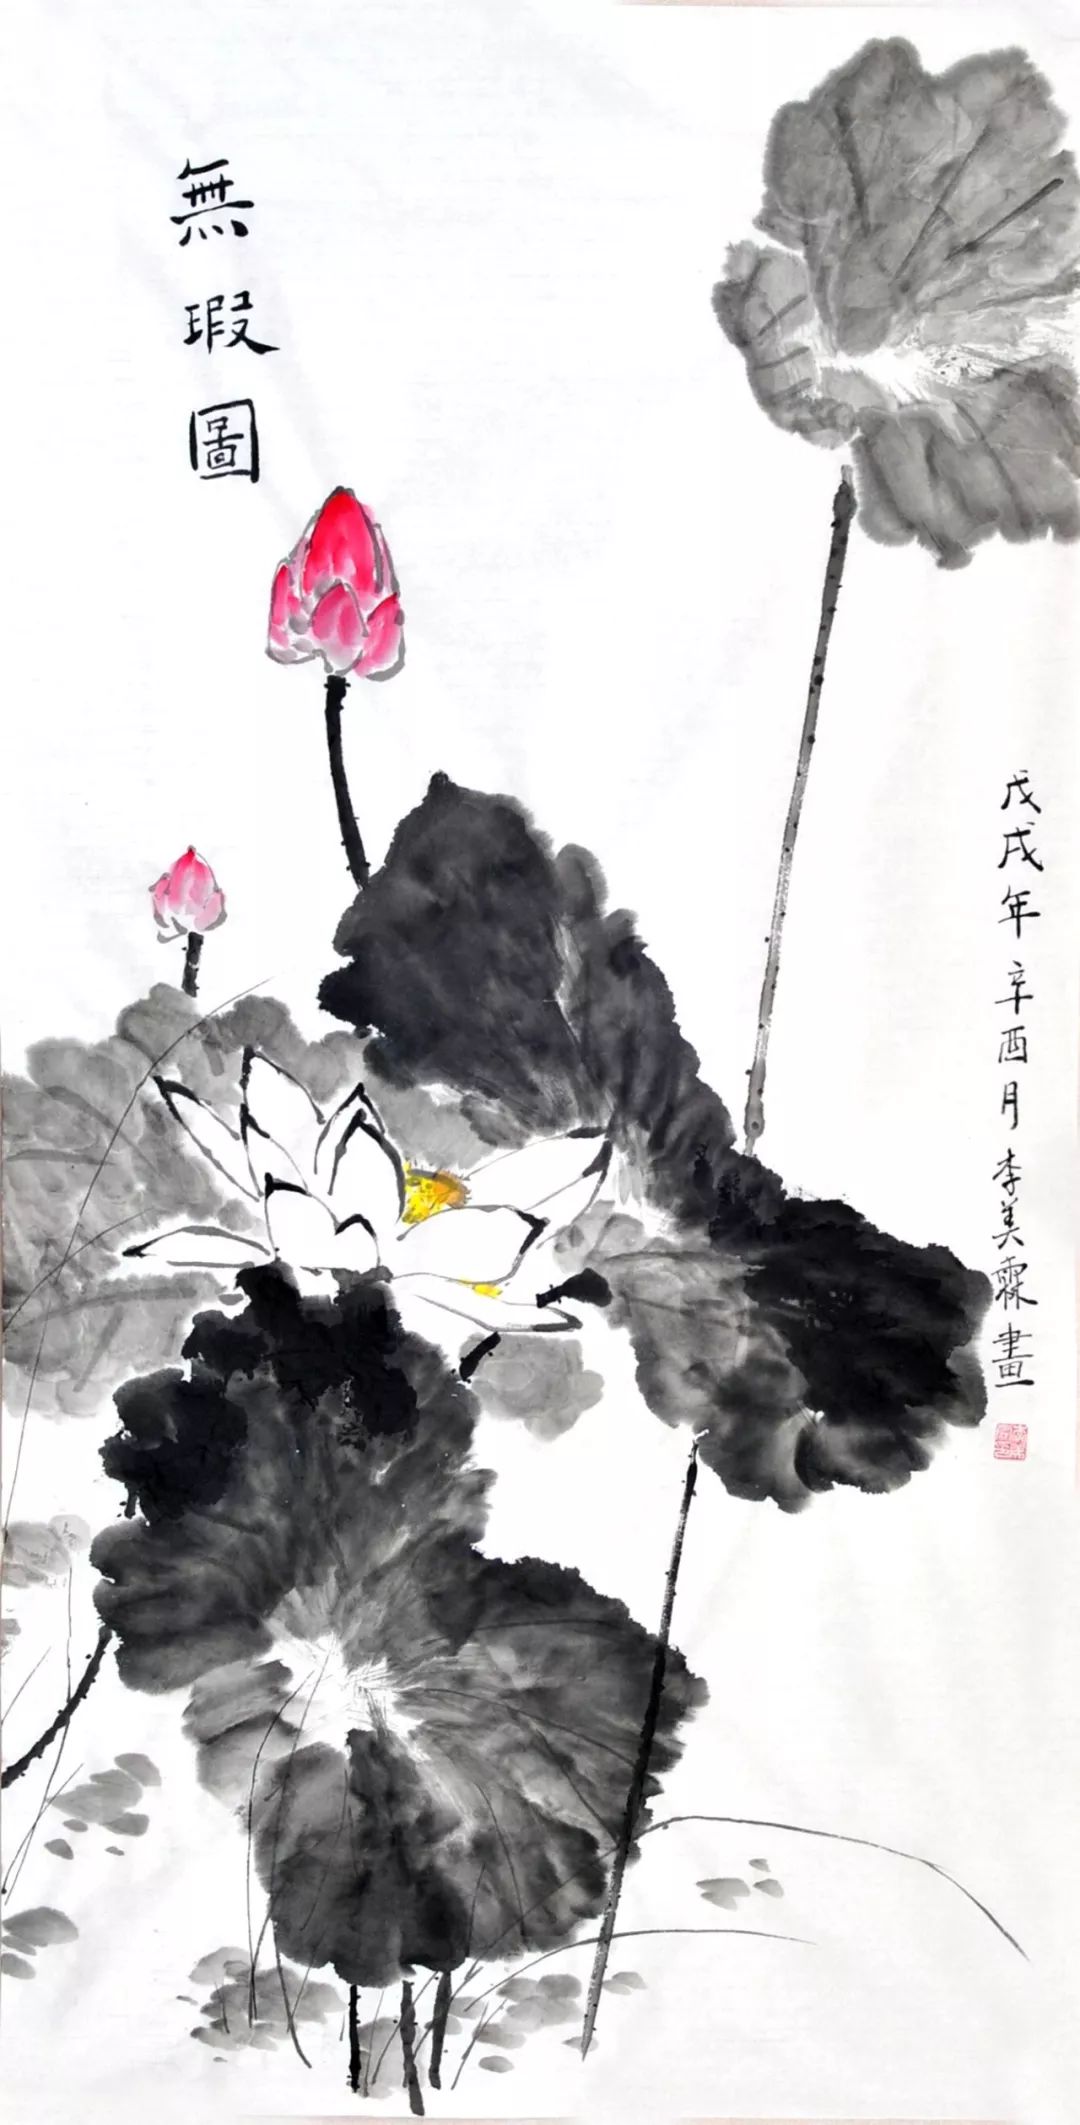 無瑕圖
戊戌年辛酉月李美霖畫